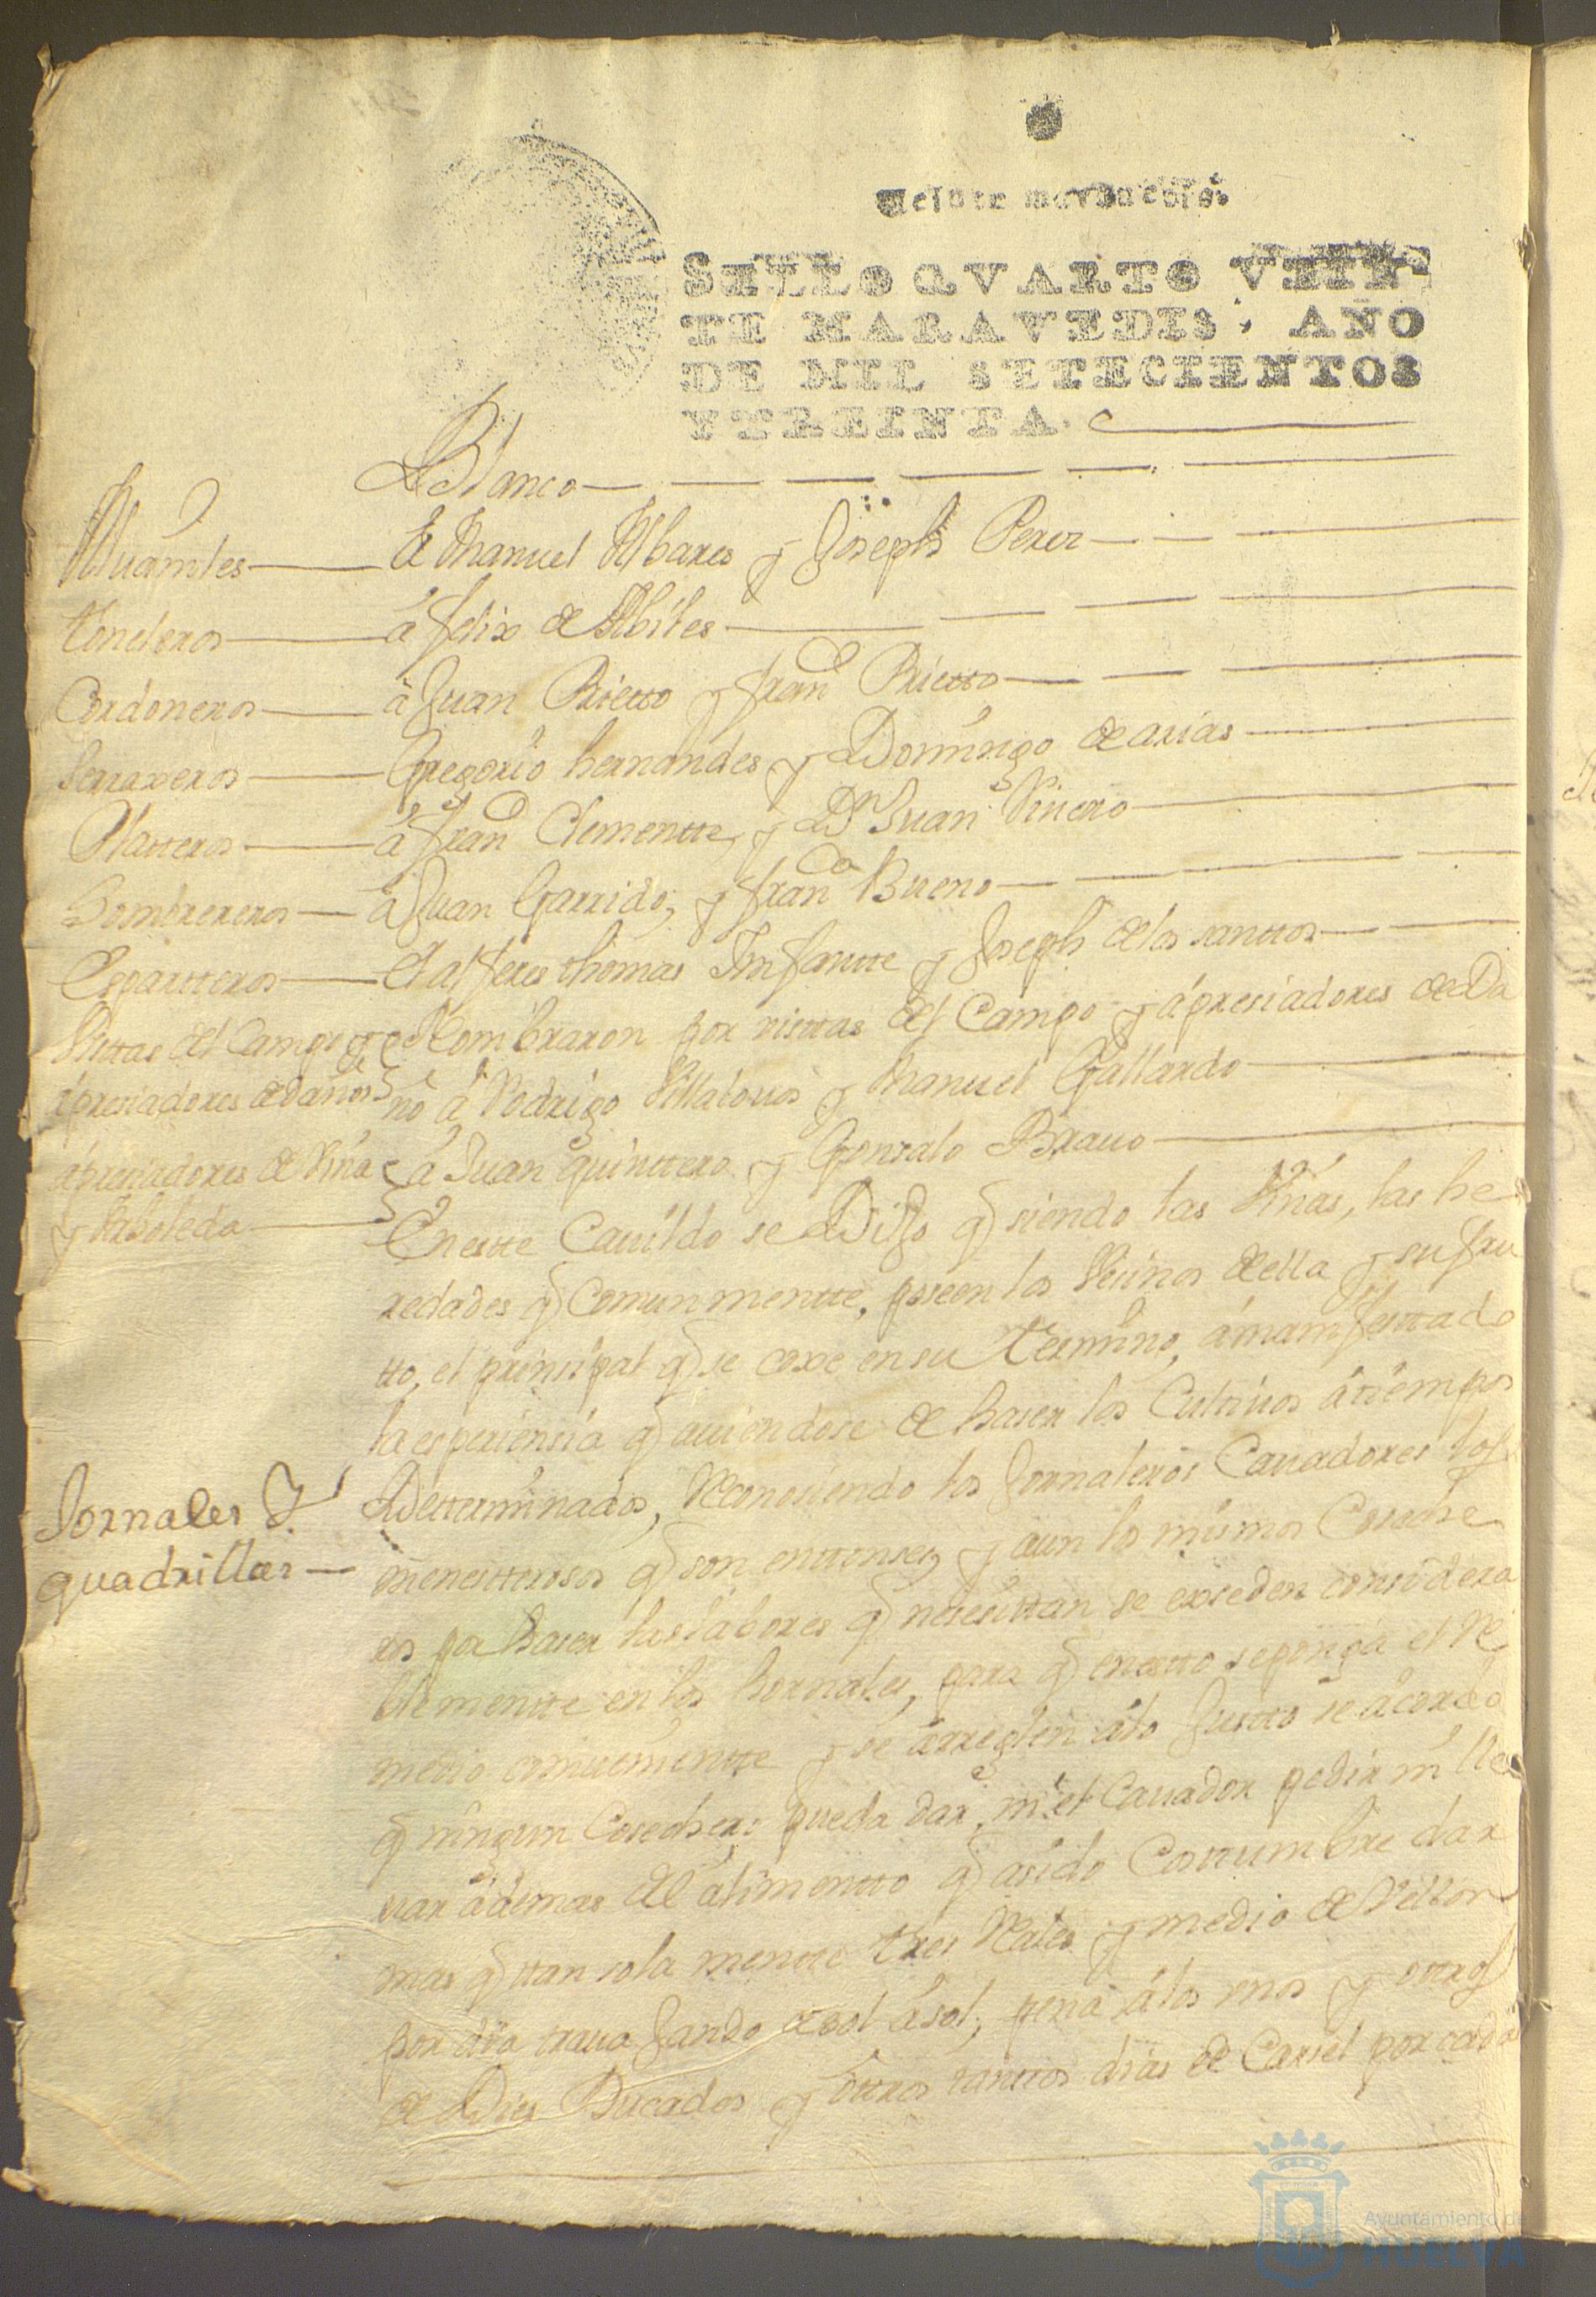 Veinte maravedis.
SELLO QVARTO VEIN
TE MARAVEDIS, AÑO
DE MIL SETECIENTOS
Y TREINTA.
Blanco
Aluañiles — A Manuel Albares y Joseph Perez
toneleros — á felix de Abiles
Cordoneros — á Juan Prietto y franco Prietto
Serraxeros — Gregorio hernandes y Domingo de arias
Platteros — á franco Clementte, y Dn Juan Piñero
Sombrereros — á Juan Garrido, y franco Bueno
Espartteros — el alferes thomas Infantte y Joseph de los santtos
Visttas del Campo y apresiadores de daños — se Nombraron por visttas del Campo y apresiadores de Da
ño á Rodrigo Villalouos y Manuel Gallardo
apresiadores de Viña y Arboleda — á Juan quinttero y Gonzalo Brauo
En estte Cauildo se Dijo q siendo las Viñas, las he
redades q Comunmentte, poseen los Vecinos della y su fru
tto, el prinsipal q se coxe en su termino, á manifesttado
la esperiensia q auiendose de haser los Culttiuos á tiempos
Jornales Y
quadrillas —
Detterminados, Reconosiendo los Jornaleros Cauadores los
menestterosos q son enttonses, y aun los mismos Coseche
ros por haser las labores q nesesittan se exseden considera
blementte en los hornales, para q en estto se ponga el Re
medio combenientte y se arreglen á lo Justto se acordó
q ningun Cosechero pueda dar, ni el Cauador pedir ni lle
uar ademas del alimentto q asido Costtumbre dar
mas q ttan sola mentte tres Reales y medio de Vellon
por dia trauajando de sol á sol, pena á los vnos y ottros
de Dies Ducados y ottros tanttos dias de Carsel por cada
Ayuntamiento de
HUELVA